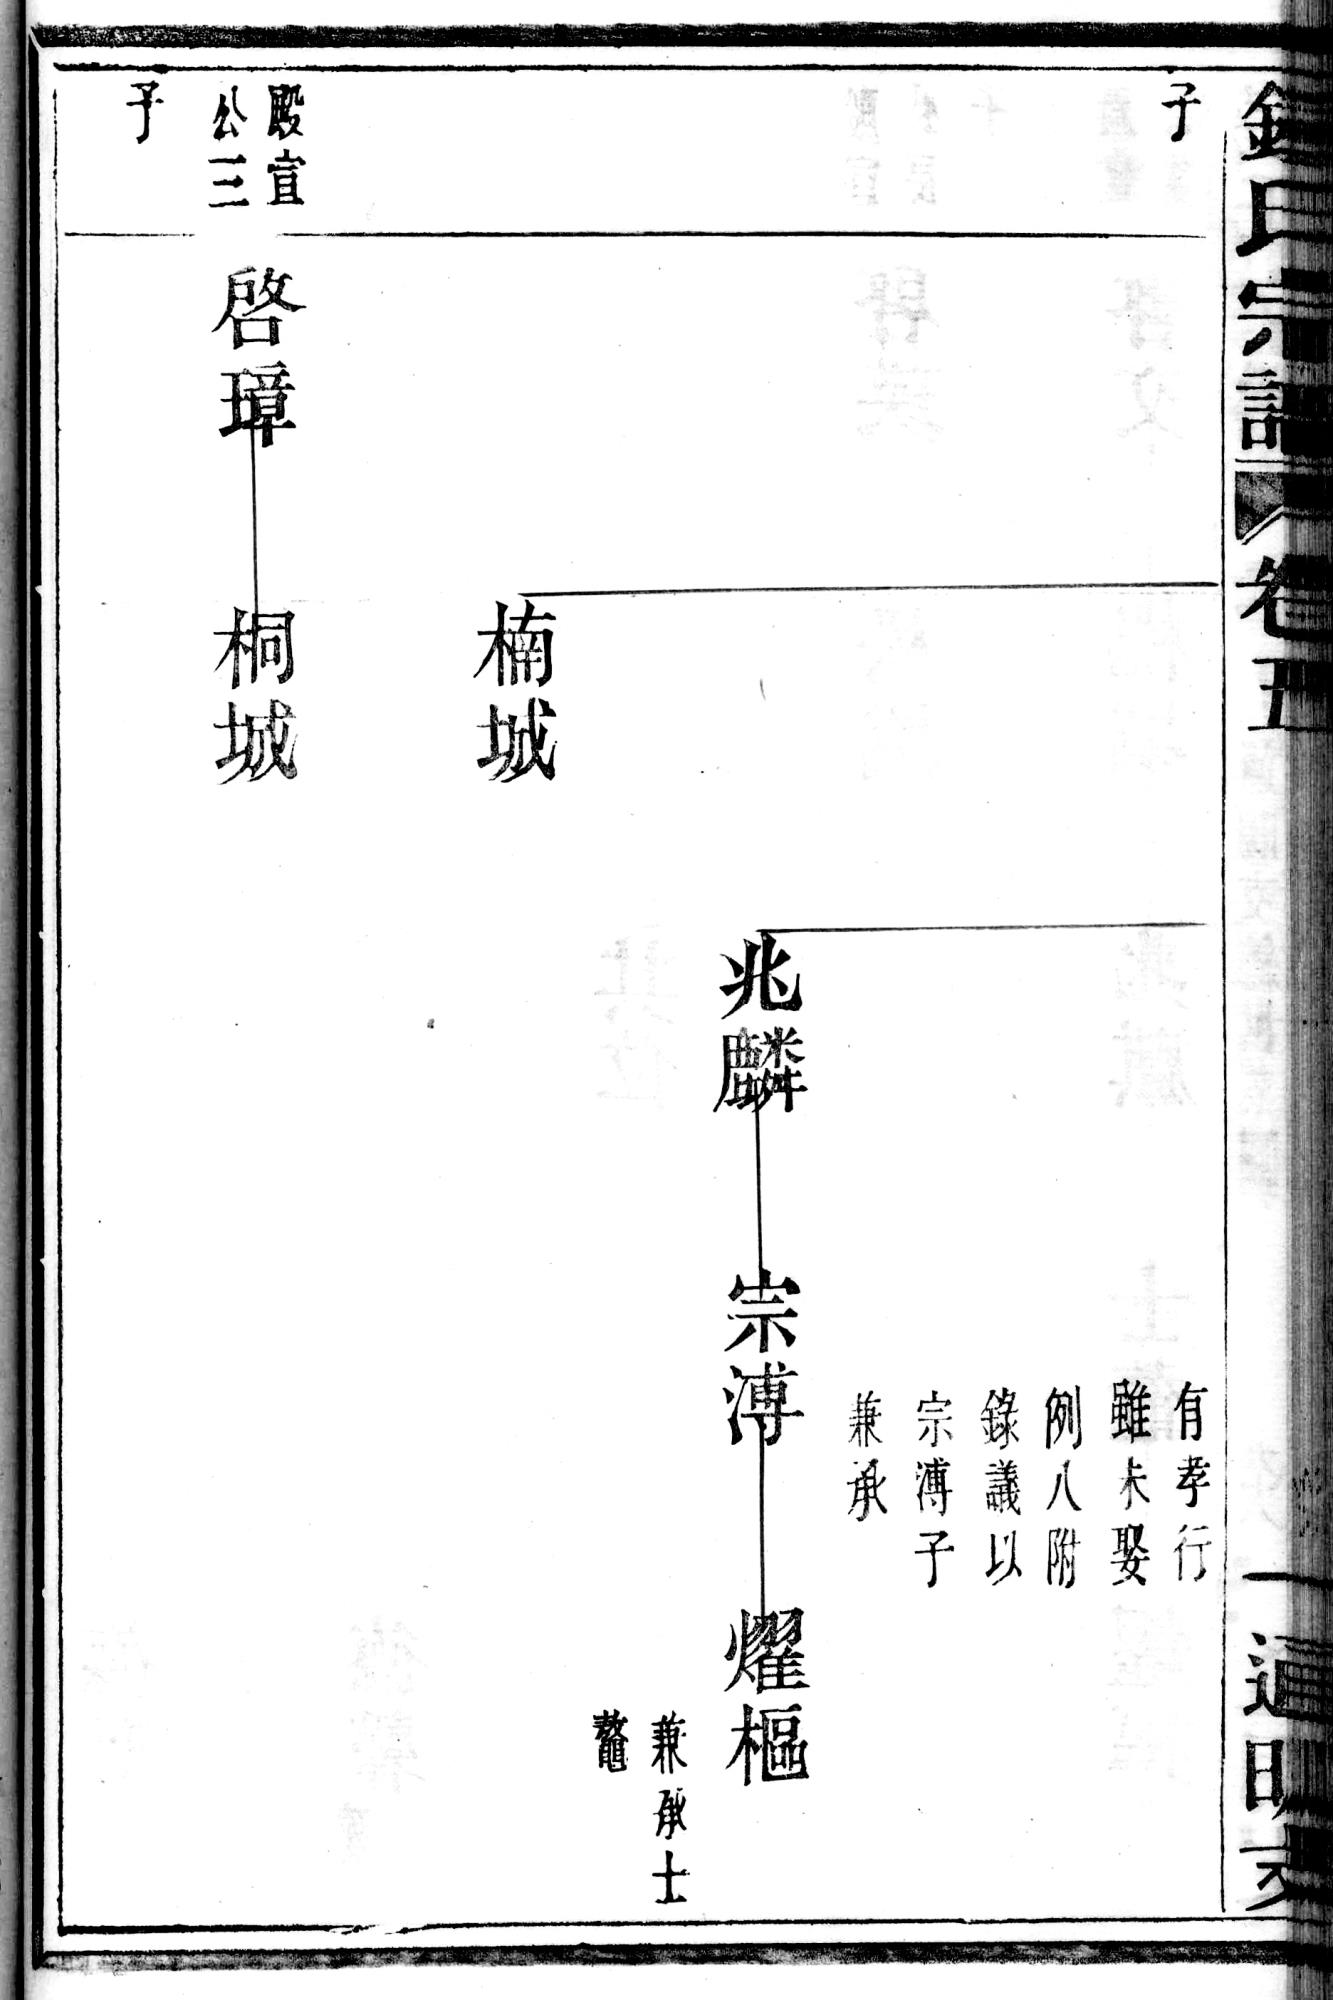 氏宗譜 卷五 一 通明支
子
有孝行
雖未娶
例八附
錄議以
宗溥子
兼承
兆麟 宗溥 燿樞
兼承士
鼇
楠城
殿宣
公三
子
啓璋 桐城